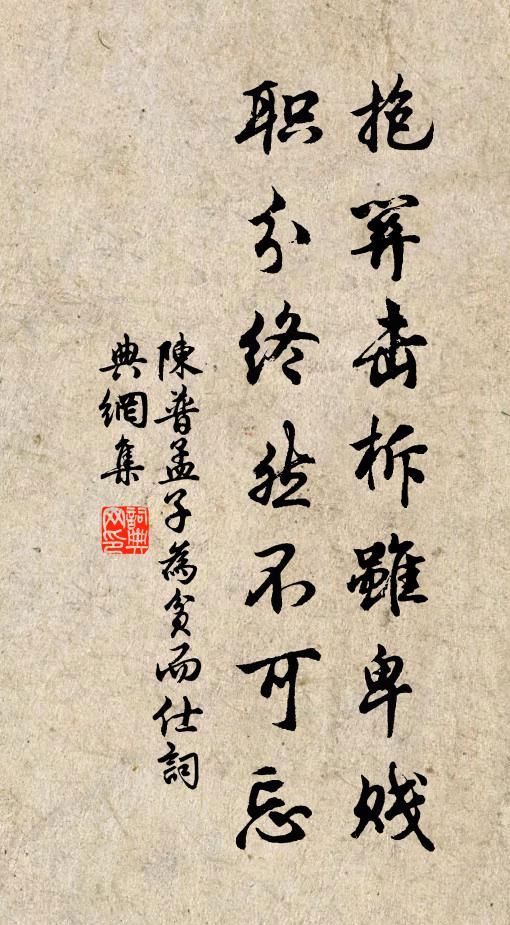 抱关击柝虽卑贱
职分终然不可忘
陳普孟子為貧而仕詞
典網集
詞典网印